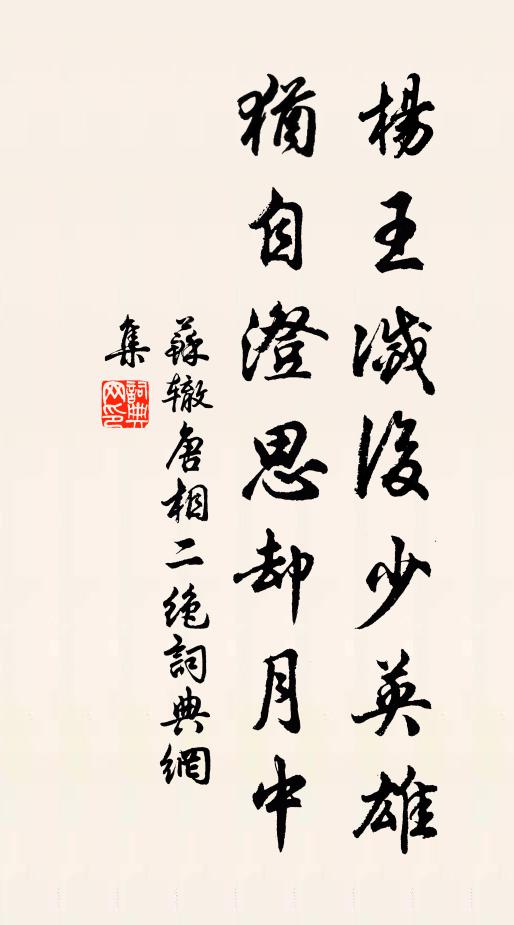 楊王滅後少英雄
猶自澄思却月中
蘇辙唐相二绝詞典網
集
詞典網